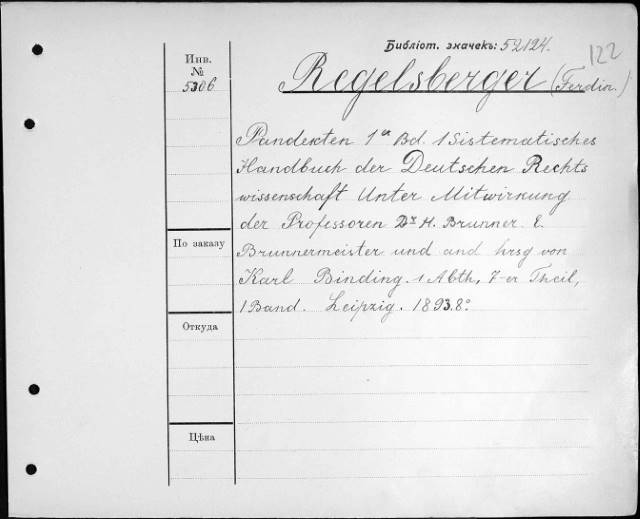 Библіот. значекъ: 52124.
122
Инв.
№
5306
Regelsberger (Ferdin.)
Pandekten 1er Bd. 1 Sistematisches
Handbuch der Deutschen Rechts
wissenschaft Unter Mitwirkung
der Professoren Dr H. Brunner. E.
По заказу
Brunnermeister und and hrsg von
Karl Binding. 1 Abth, 7-er Theil,
1 Band. Leipzig. 1893. 8º
Откуда
Цѣна